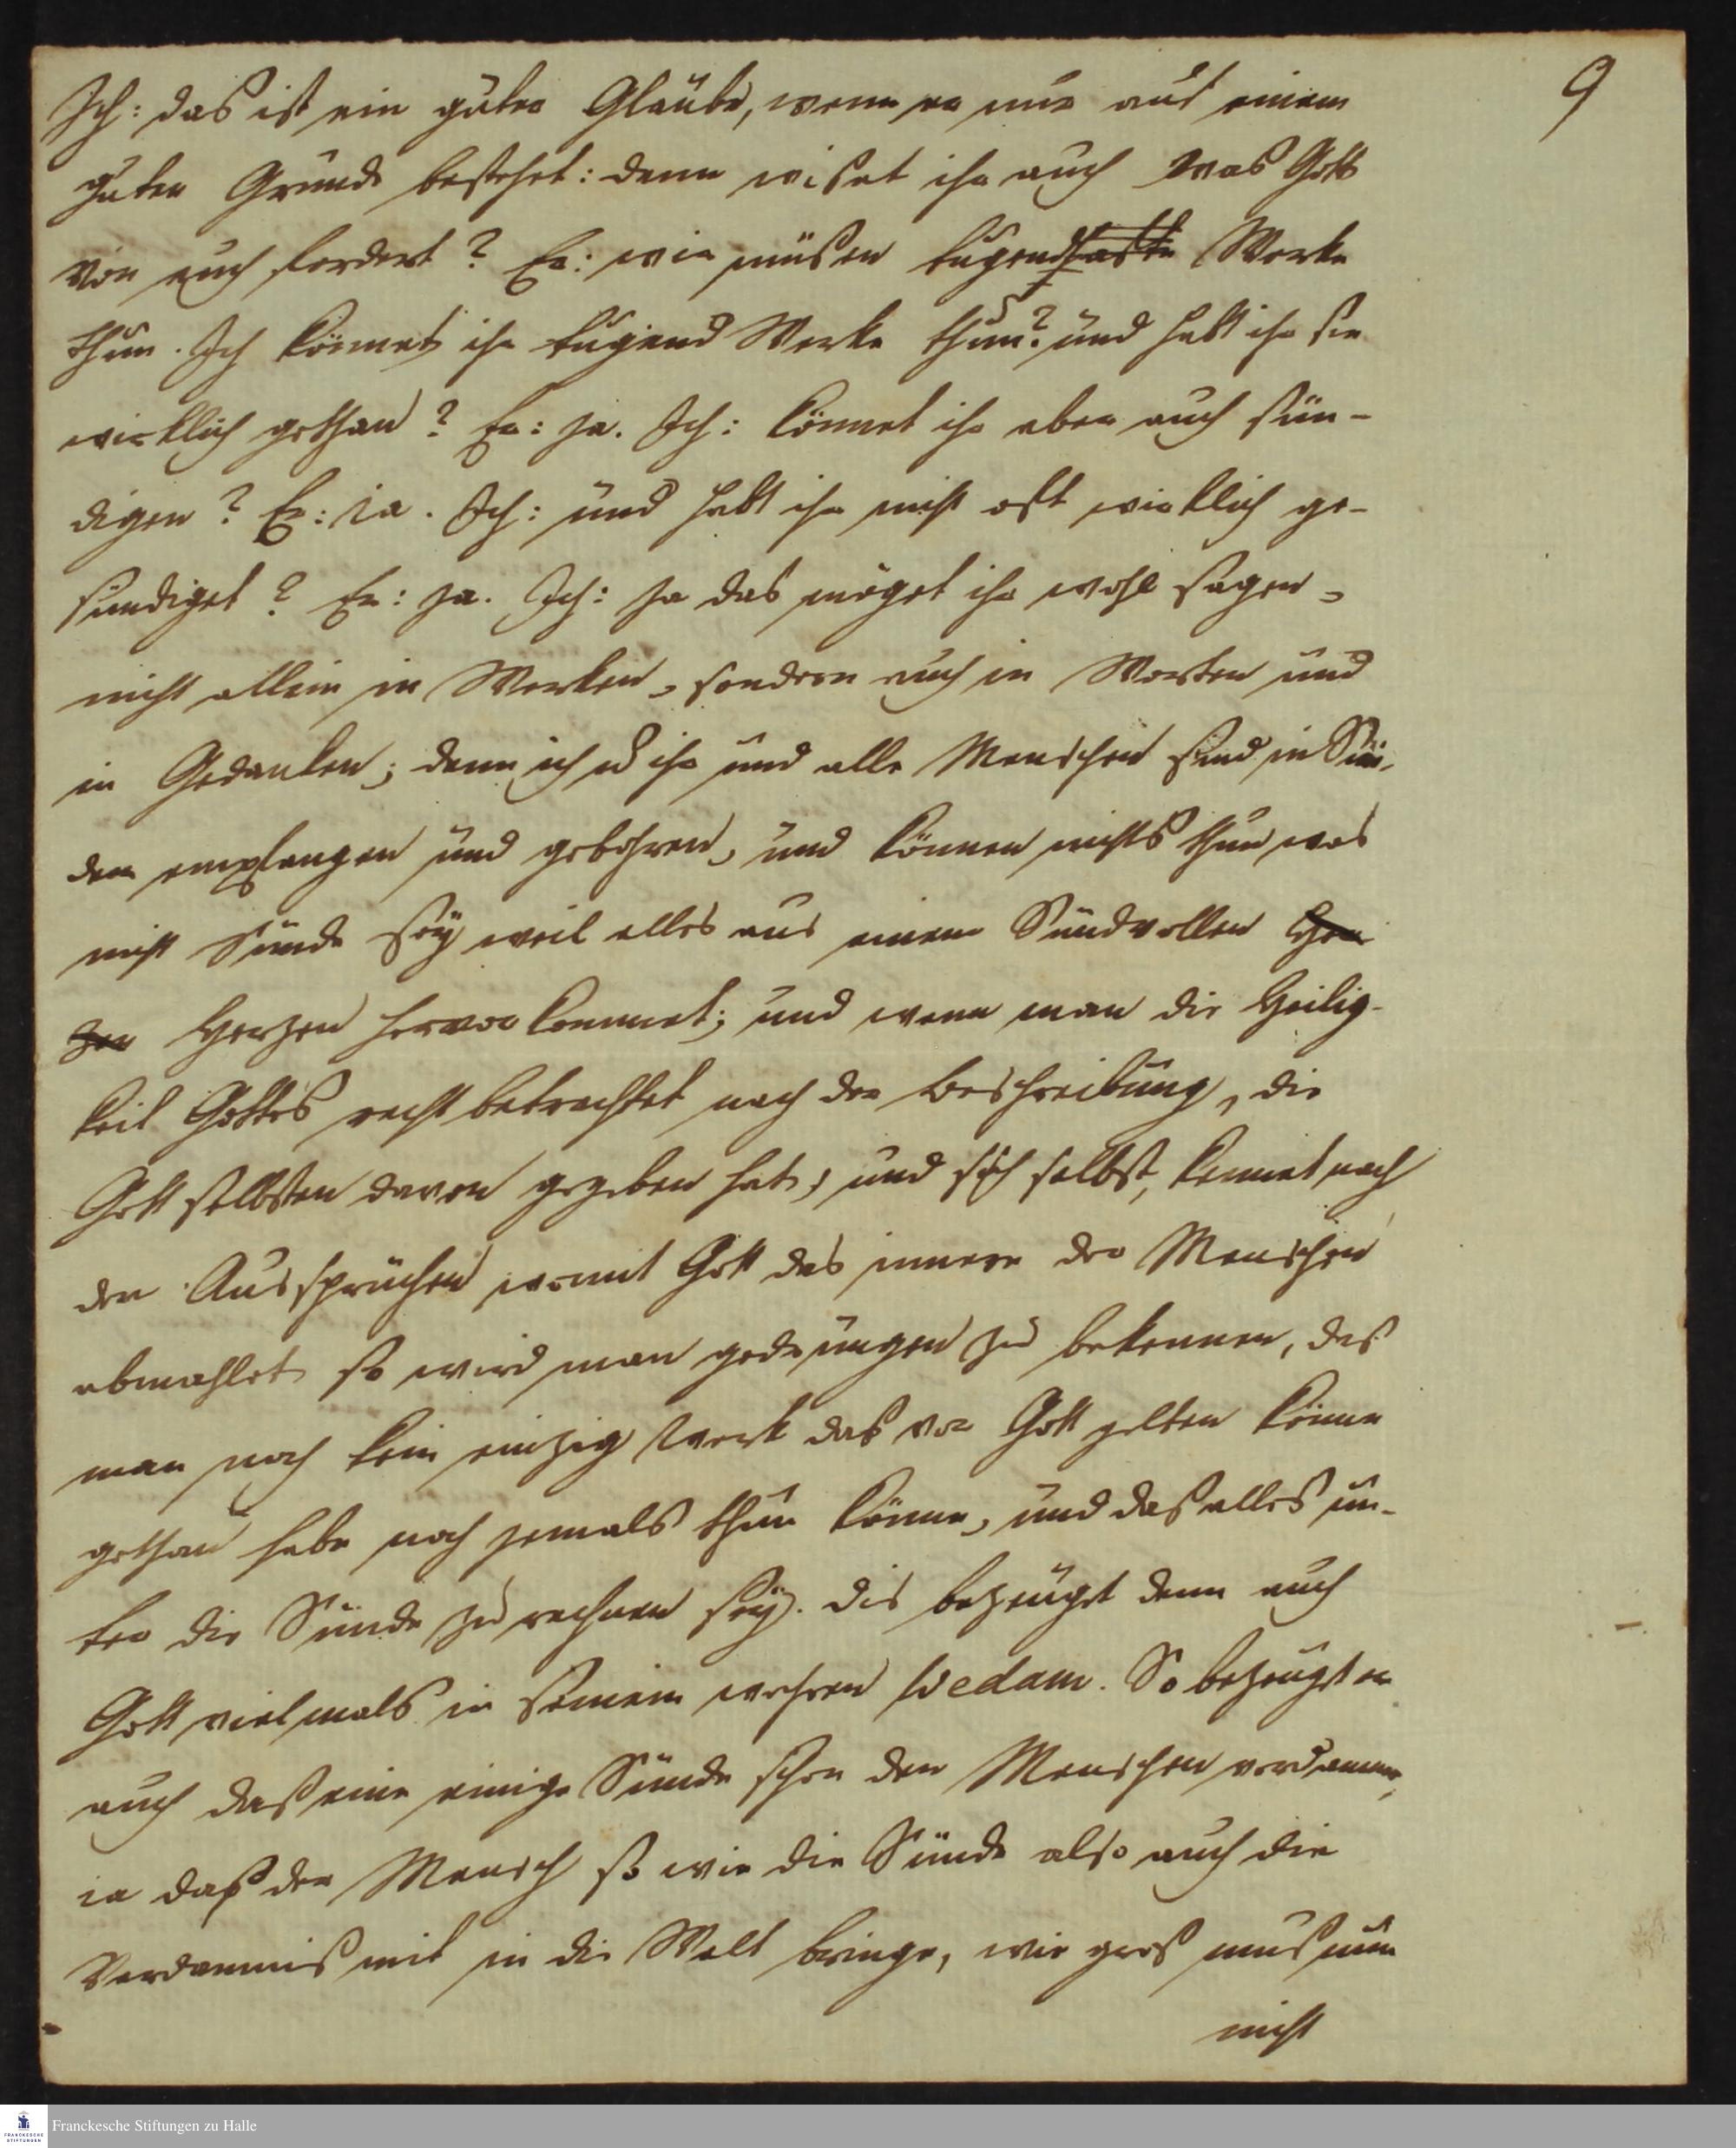 9
Ich: das ist ein guter Glaube, wenn er nur auf einem
guten Grunde bestehet: denn wißet ihr auch was Gott
von euch fordert? Er: wir müßen tugendhafte Werke
thun. Ich könnet ihr tugend Werke thun? und habt ihr sie
wircklich gethan? Er: ja. Ich: könnet ihr aber auch sün-
digen? Er: ja. Ich: und habt ihr nicht oft wircklich ge-
sündiget? Er: ja. Ich: ja das möget ihr wohl sagen,
nicht allein in Werken, sondern auch in Worten und
in Gedanken; denn ich u ihr und alle Menschen sind in Sün-
den empfangen und gebohren, und können nichts thun was
nicht Sünde sey weil alles aus einem Sündvollen Her
zen Herzen hervor kommet; und wenn man die Heilig-
keit Gottes recht betrachtet nach der Beschreibung, die
Gott selbsten davon gegeben hat, und sich selbst, kennet nach
den Aussprüchen womit Gott das innere der Menschen
abmahlet so wird man gedrungen zu bekennen, daß
man noch kein einzig Werk das vor Gott gelten könne
gethan habe noch jemals thun könne, und daß alles un-
ter die Sünde zu rechnen sey. Dis bezeuget denn auch
Gott vielmals in seinem wahren Wedam. So bezeugt er
auch daß eine einige Sünde schon den Menschen verdamme,
ja daß der Mensch so wie die Sünde also auch die
Verdammniß mit in die Welt bringe, wie groß muß nun
nicht
Franckesche Stiftungen zu Halle
FRANCKESCHE
STIFTUNGEN